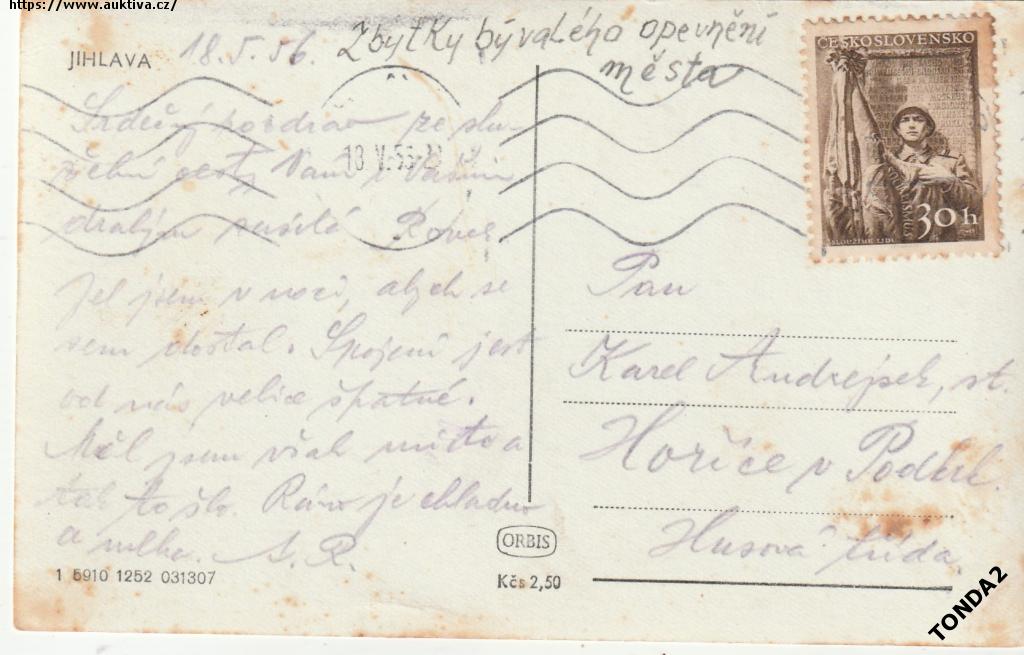 https://www.auktiva.cz/
JIHLAVA 18.5.56. Zbytky bývalého opevnění
města
ČESKOSLOVENSKO
30 h
SLOUŽÍME LIDU
18.V.56
Srdečný pozdrav ze slu-
žební cesty Vám i Vašim
drahým zasílá
Jel jsem v noci, abych se
sem dostal. Spojení jest
od nás velice špatné.
Měl jsem však místo a
tak to šlo. Ráno je chladno
a mlha. A. R.
Pan
Karel Andrejsek, st.
Hořice v Podkrk.
Husova třída
ORBIS
1 5910 1252 031307
Kčs 2,50
TONDA2